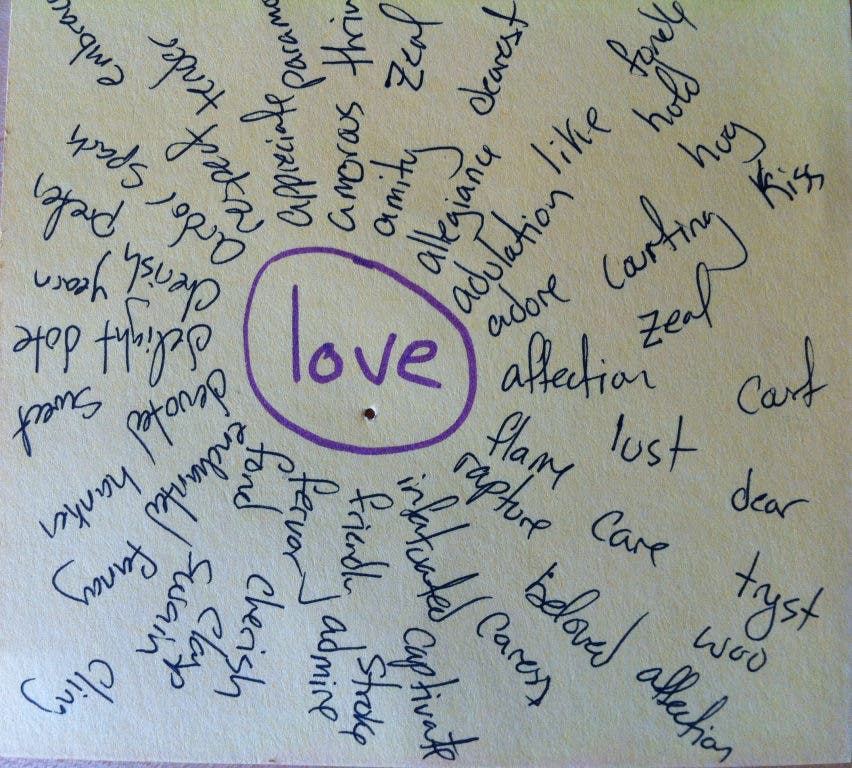 love
embrace
tender
respect
appreciate
amorous
amity
zeal
dearest
allegiance
like
hold
hug
kiss
adulation
adore
courting
zeal
affection
lust
dear
flame
rapture
care
tryst
woo
affection
beloved
infatuated
caress
captivate
friendly
stroke
admire
fervor
fond
cherish
clasp
enchanted
fancy
cling
devoted
hanker
sweet
delight
date
cherish
yearn
prefer
ardor